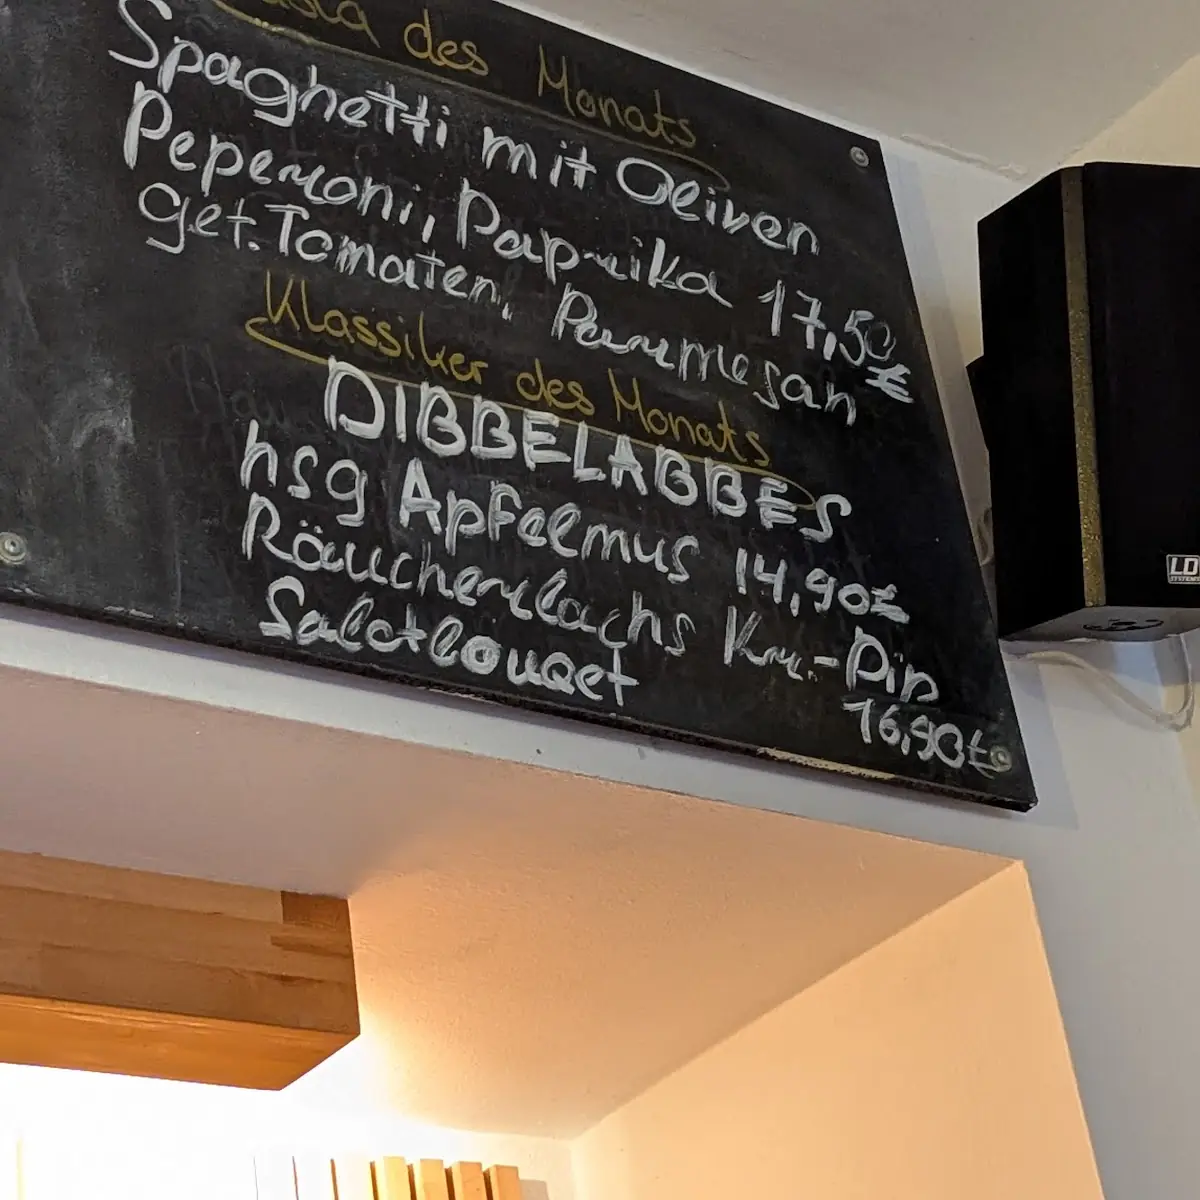 Pasta des Monats
Spaghetti mit Oliven
Peperoni, Paprika 17,50€
get. Tomaten, Parmesan
Klassiker des Monats
DIBBELABBES
hsg Apfelmus 14,90€
Räucherlachs Kr.-Dip
Salatbouqet 16,90€
LD
SYSTEMS